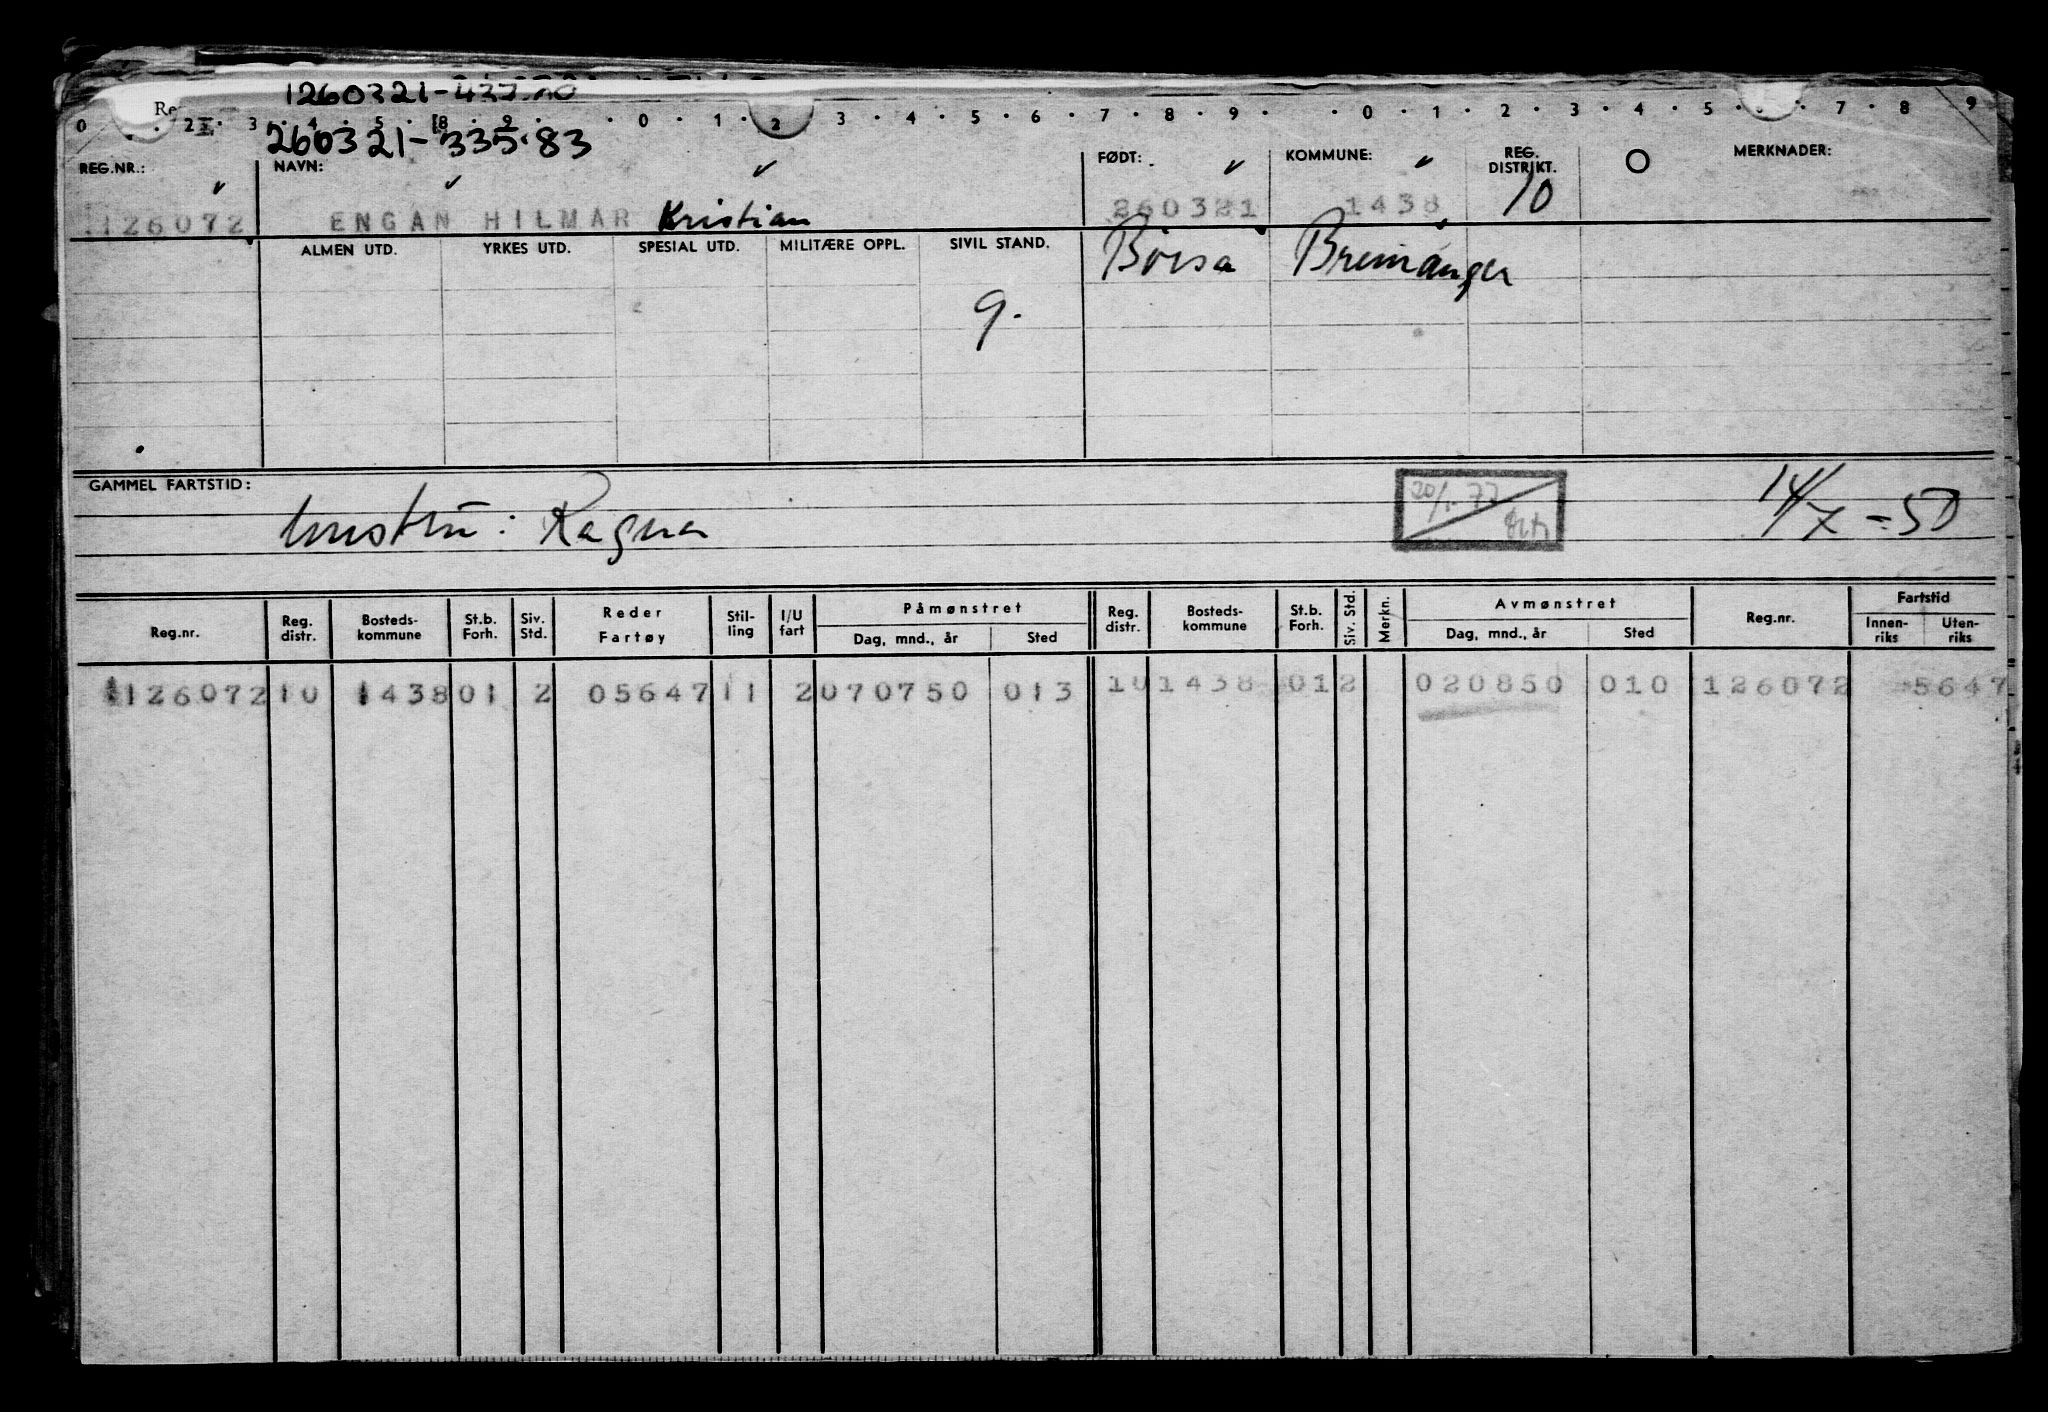 1260321-
0 2 3 4 5 8 9 0 1 2 3 4 5 6 7 8 9 0 1 2 3 4 5 7 8 9
260321-335.83
REG.NR.: NAVN: FØDT: KOMMUNE: REG. DISTRIKT. MERKNADER:
126072 ENGAN HILMAR Kristian 260321 1438 10
ALMEN UTD. YRKES UTD. SPESIAL UTD. MILITÆRE OPPL. SIVIL STAND. Børsa Bremanger
g.
GAMMEL FARTSTID:
hustru: Ragna 20/1.77 14/X-50
Reg.nr. Reg. distr. Bosteds-kommune St.b. Forh. Siv. Std. Reder Fartøy Stil-ling I/U fart Påmønstret Dag, mnd., år Sted Reg. distr. Bosteds-kommune St.b. Forh. Siv. Std. Merkn. Avmønstret Dag, mnd., år Sted Reg.nr. Fartstid Innen-riks Uten-riks
126072 10 1438 01 2 05647 11 2 070750 013 10 1438 01 2 020850 010 126072 5647